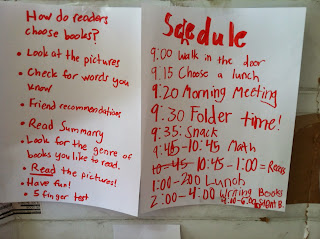 How do readers
choose books?
• Look at the pictures
• Check for words you
know
• Friend recommendations
• Read Summary
• Look for the genre of
books you like to read.
• Read the pictures!
• Have fun!
• 5 finger test
Scedule
9:00 walk in the door
9:15 Choose a lunch
9:20 Morning Meeting
9:30 Folder time!
9:35: Snack
9:45-10:45 Math
10:45 10:45-1:00=Recess
1:00-2:00 Lunch
2:00-4:00 Writing Books
4:00-6:00